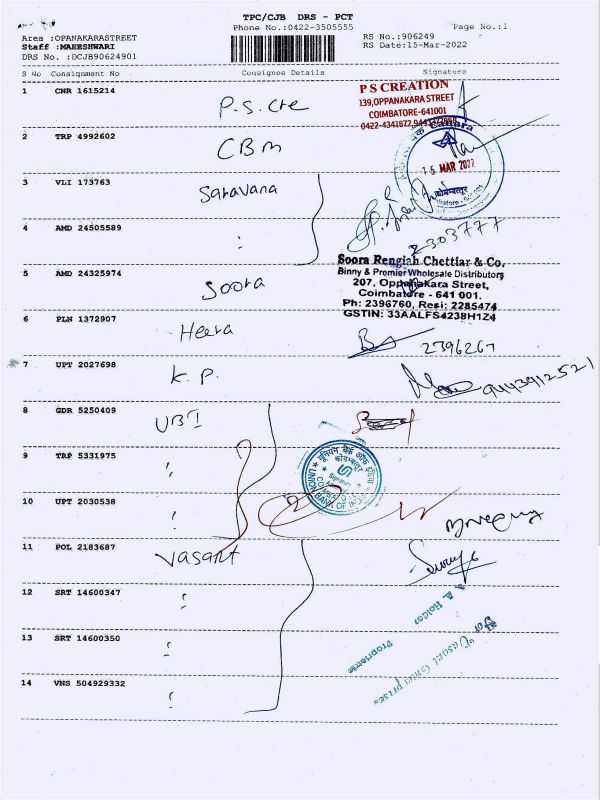 TPC/CJB DRS - PCT
Phone No.:0422-3505555
Page No.:1
Area :OPANAKARASTREET
Staff :MAHESHWARI
DRS No. :DCJB90624901
RS No.:906249
RS Date:15-Mar-2022
S No Consignment No Consignee Details Signature
1 CNR 1615214 P.S. Cre
P S CREATION
139,OPPANAKARA STREET
COIMBATORE-641001
2 TRP 4992602 CBM
15 MAR 2022
3 VLI 173763 Saravana
4 AMD 24505589 :
2303777
5 AMD 24325974 Soora
Soora Rengiah Chettiar & Co.
Binny & Premier Wholesale Distributors
207, Oppanakara Street,
Coimbatore - 641 001.
Ph: 2396760, Resi: 2285474
GSTIN: 33AALFS4238H1Z4
6 PLN 1372907 Heera
2396267
7 UPT 2027698 K.P.
9443912521
8 GDR 5250409 UBI
9 TRP 5331975 :
यूनियन बैंक ऑफ इंडिया
UNION BANK OF INDIA
10 UPT 2030538 :
11 POL 2183687 Vasant
12 SRT 14600347 :
13 SRT 14600350 :
for Vasant Enterprises
Proprietrix
14 VNS 504929332 :